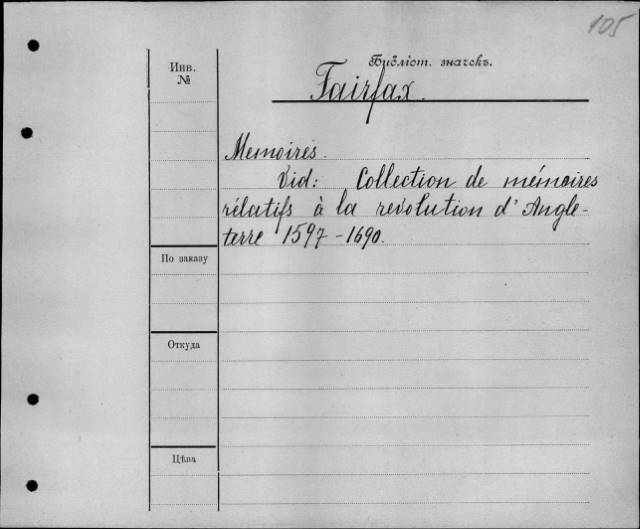 105
Инв.
№
Библіот. значекъ.
Fairfax.
Memoires.
Vid: Collection de mémoires
rélatifs à la revolution d'Angle-
terre 1597-1690.
По заказу
Откуда
Цѣна